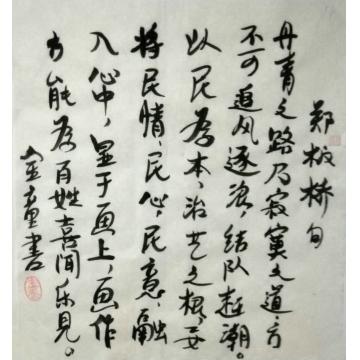 郑板桥句
丹青之路乃寂寞之道,万
不可追风逐浪,结队赶潮。
以民為本、治艺之根,要
将民情、民心、民意,融
入心中,显于画上,画作
方能為百姓喜闻乐见。
金童書